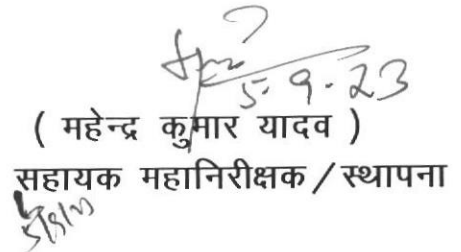 5-9-23
( महेन्द्र कुमार यादव )
सहायक महानिरीक्षक / स्थापना